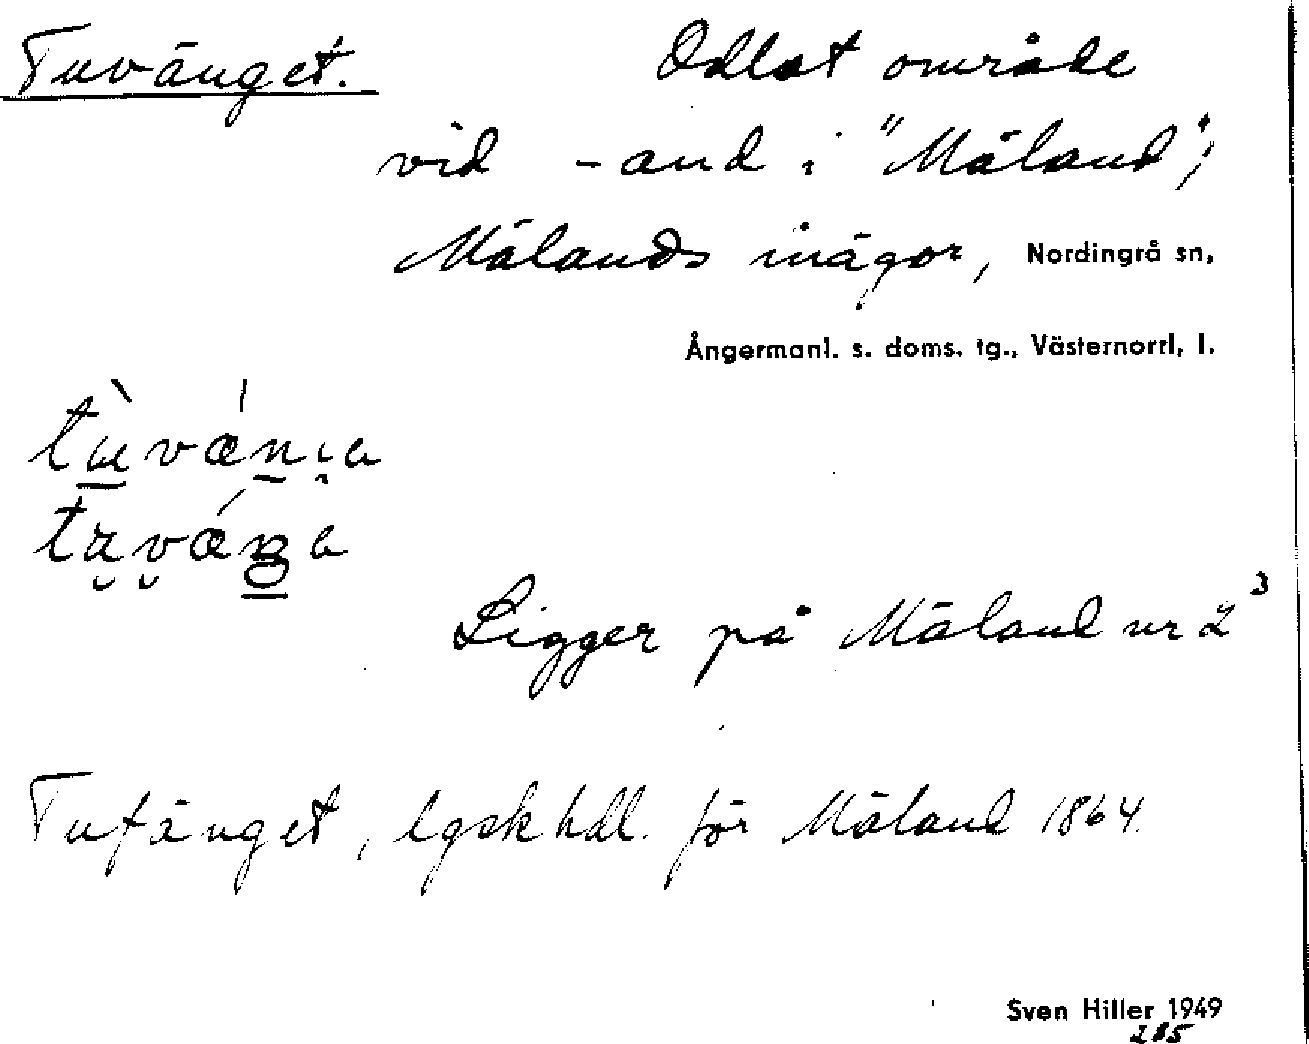 Tuvänget. Odlat område
vid -and i "Mäland",
Mälands inägor, Nordingrå sn,
Ångermanl. s. doms. tg., Västernorrl, l.
Ligger på Mäland nr 2³
Tufänget, lgsk hdl. för Mäland 1864.
Sven Hiller 1949
285